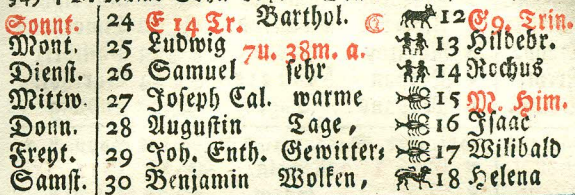 Sonnt. 24 E 14 Tr. Barthol. 12 E 9. Trin.
Mont. 25 Ludwig 7u. 38m. a. 13 Hildebr.
Dienst. 26 Samuel sehr 14 Rochus
Mittw. 27 Joseph Cal. warme 15 M. Him.
Donn. 28 Augustin Tage, 16 Isaac
Freyt. 29 Joh. Enth. Gewitter= 17 Wilibald
Samst. 30 Benjamin Wolken, 18 Helena